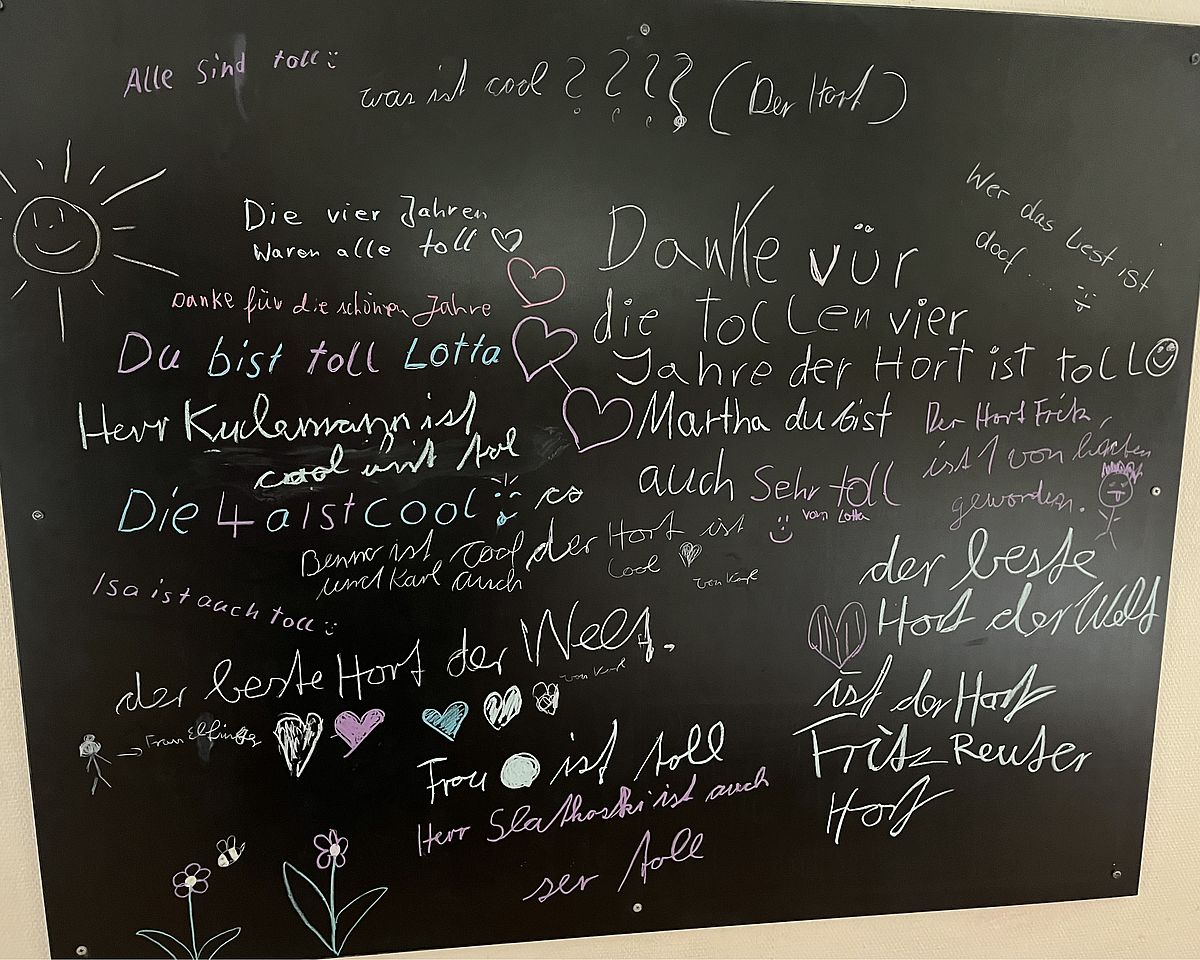 Alle sind toll
was ist cool ???? (Der Hort)
Wer das liest ist
doof....
Die vier Jahren
Waren alle toll
Danke für die schönen Jahre
Du bist toll Lotta
Danke vür
die tollen vier
Jahre der Hort ist toll
Herr Kulemann ist
cool unt tol
Martha du bist
auch Sehr toll
von Lotta
Der Hort Fritz,
ist 1 von
geworden.
Die 4a ist cool
Benno ist cool
und Karl auch
der Hort ist
cool
von Karl
Isa ist auch toll
der beste
Hort der Welt
ist der Hort
Fritz Reuter
Hort
der beste Hort der Welt.
von Karl
Frau
Frau ist toll
Herr Slatkoski ist auch
ser toll